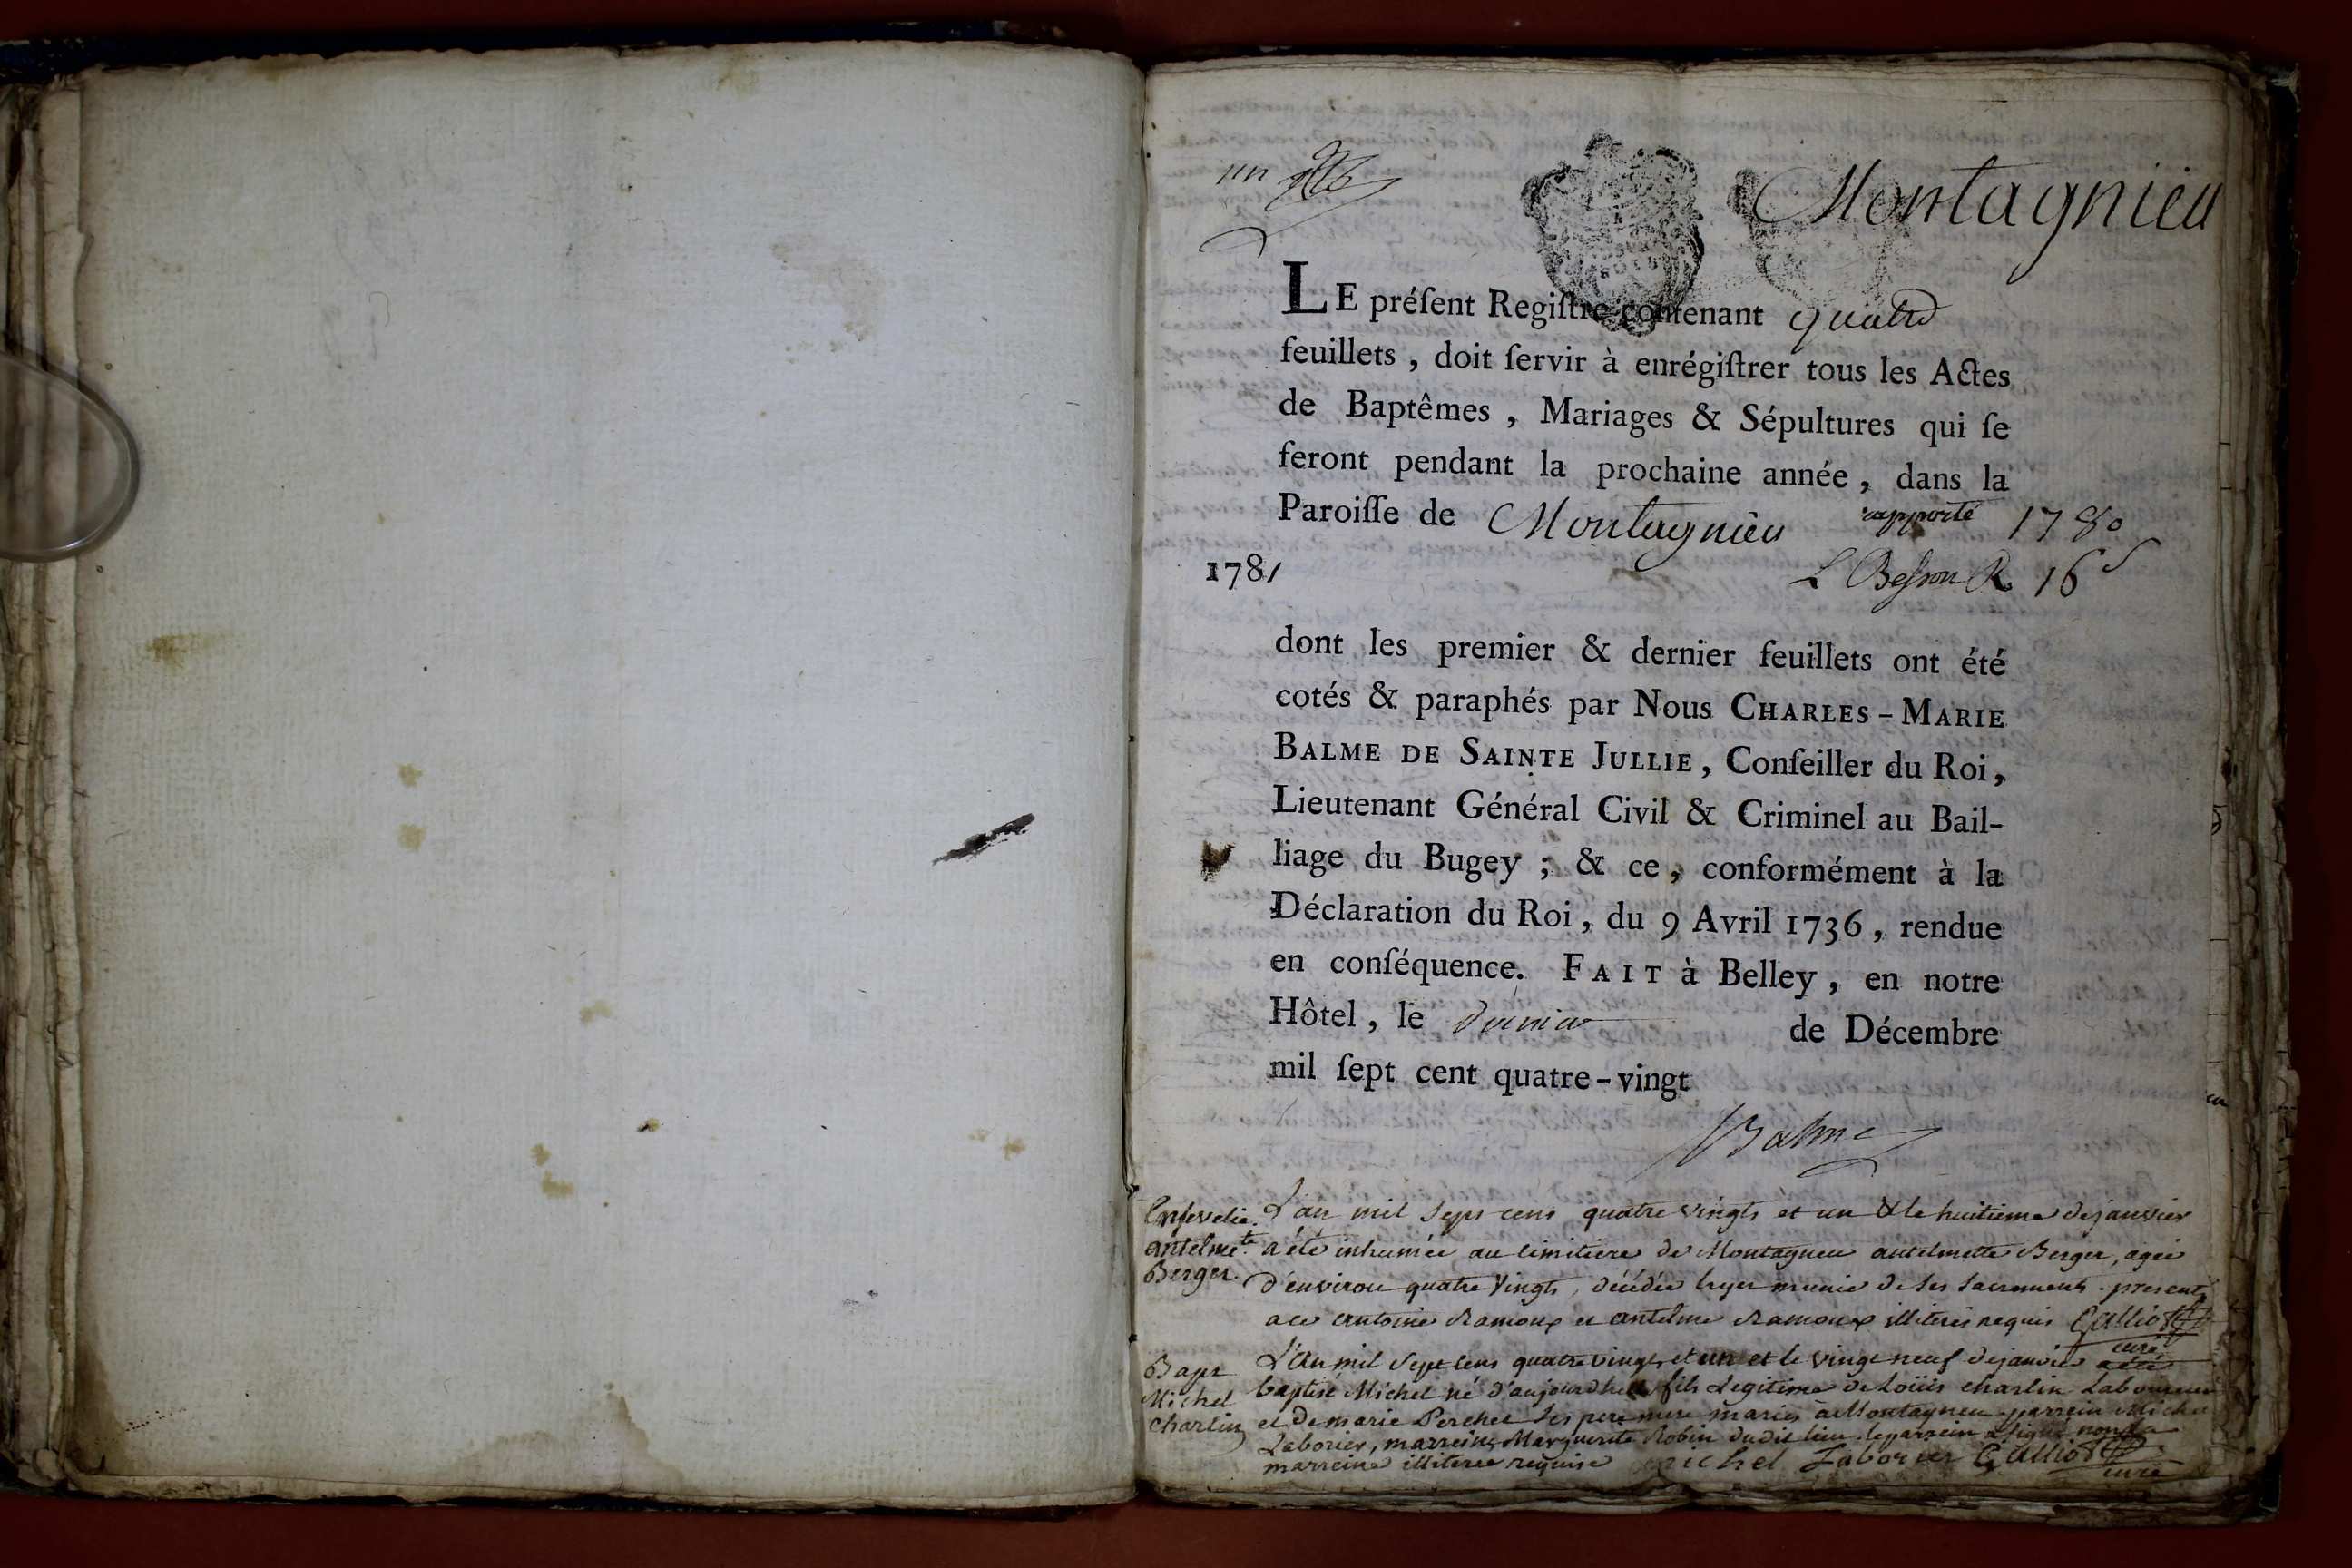 un
Montagnieu
LE préſent Regiſtre contenant quatre
feuillets , doit ſervir à enrégiſtrer tous les Actes
de Baptêmes , Mariages & Sépultures qui ſe
feront pendant la prochaine année , dans la
Paroiſſe de Montagnieu rapporté 1780
1781 L Besson R. 16ˢ
dont les premier & dernier feuillets ont été
cotés & paraphés par Nous CHARLES - MARIE
BALME DE SAINTE JULLIE , Conſeiller du Roi ,
Lieutenant Général Civil & Criminel au Bail-
liage du Bugey ; & ce , conformément à la
Déclaration du Roi , du 9 Avril 1736 , rendue
en conſéquence. FAIT à Belley , en notre
Hôtel , le dernier de Décembre
mil ſept cent quatre - vingt
Balme
Ensevelie. L'an mil sept cens quatre vingts et un & le huitieme de janvier
antelmeᵗᵉ a été inhumée au cimitiere de Montagneu antelmette Berger, agée
Berger. d'environ quatre vingts, décédée hyer munie de ses sacrements. presents
ace antoine Ramoux et antelme Ramoux illiterés requis Galliot
curé
Bapt L'an mil sept cens quatre vingts et un et le vingt neuf de janvier a été
Michel baptisé Michel né d'aujourdhui fils Legitime de Loüis charlin Laboureur
Charlin et de marie Perchet ses pere mere mariés à Montagneu parrein Michel
Laborier, marreine Marguerite Robin dudit lieu. le parrein a signé non la
marreine illiteree requise michel Laborier Galliot
curé